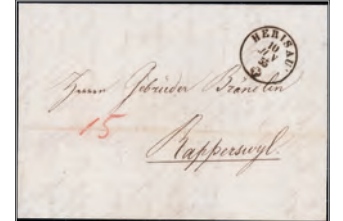 HERISAU
10
55
Herrn Gebrüder Brändlin
15
Rapperswyl.